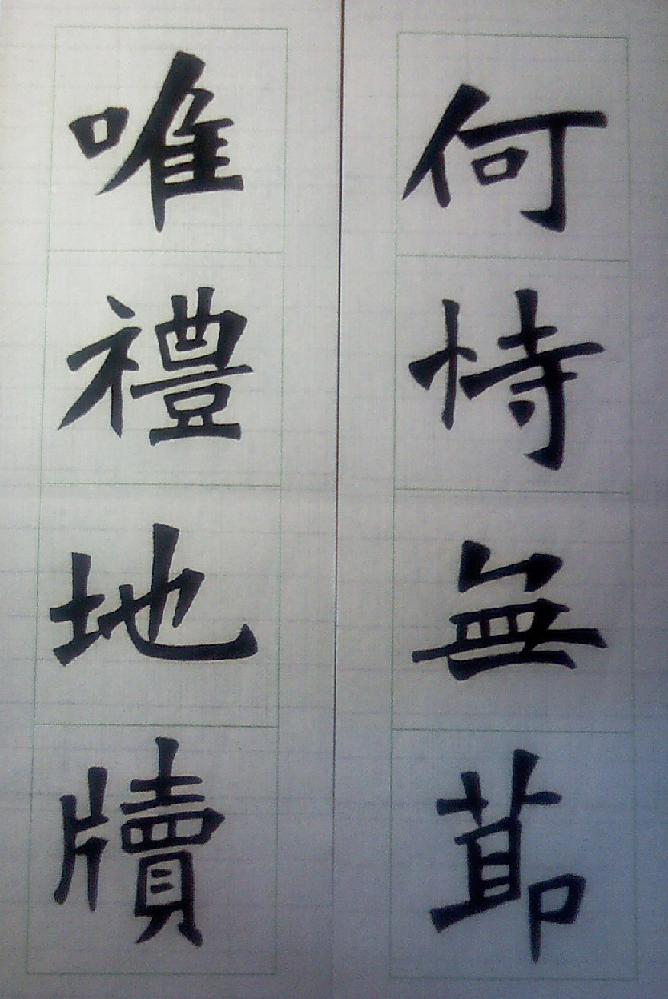 何恃無莭
唯禮地牘